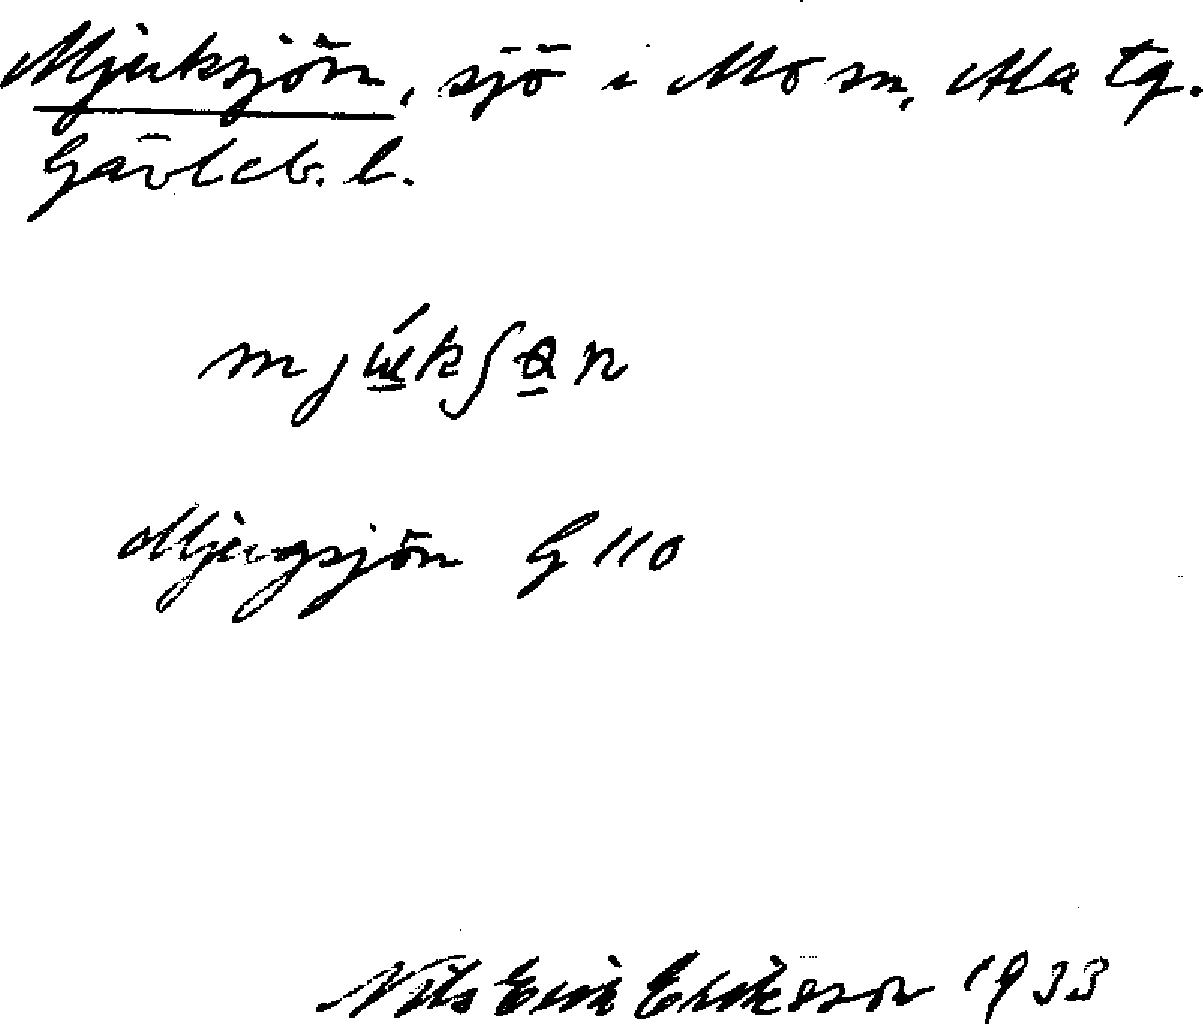 Mjuksjön, sjö i Mo sn, Ala tg.
Gävleb. l.
Mjugsjön G 110
Nils Erik Eriksson 1933